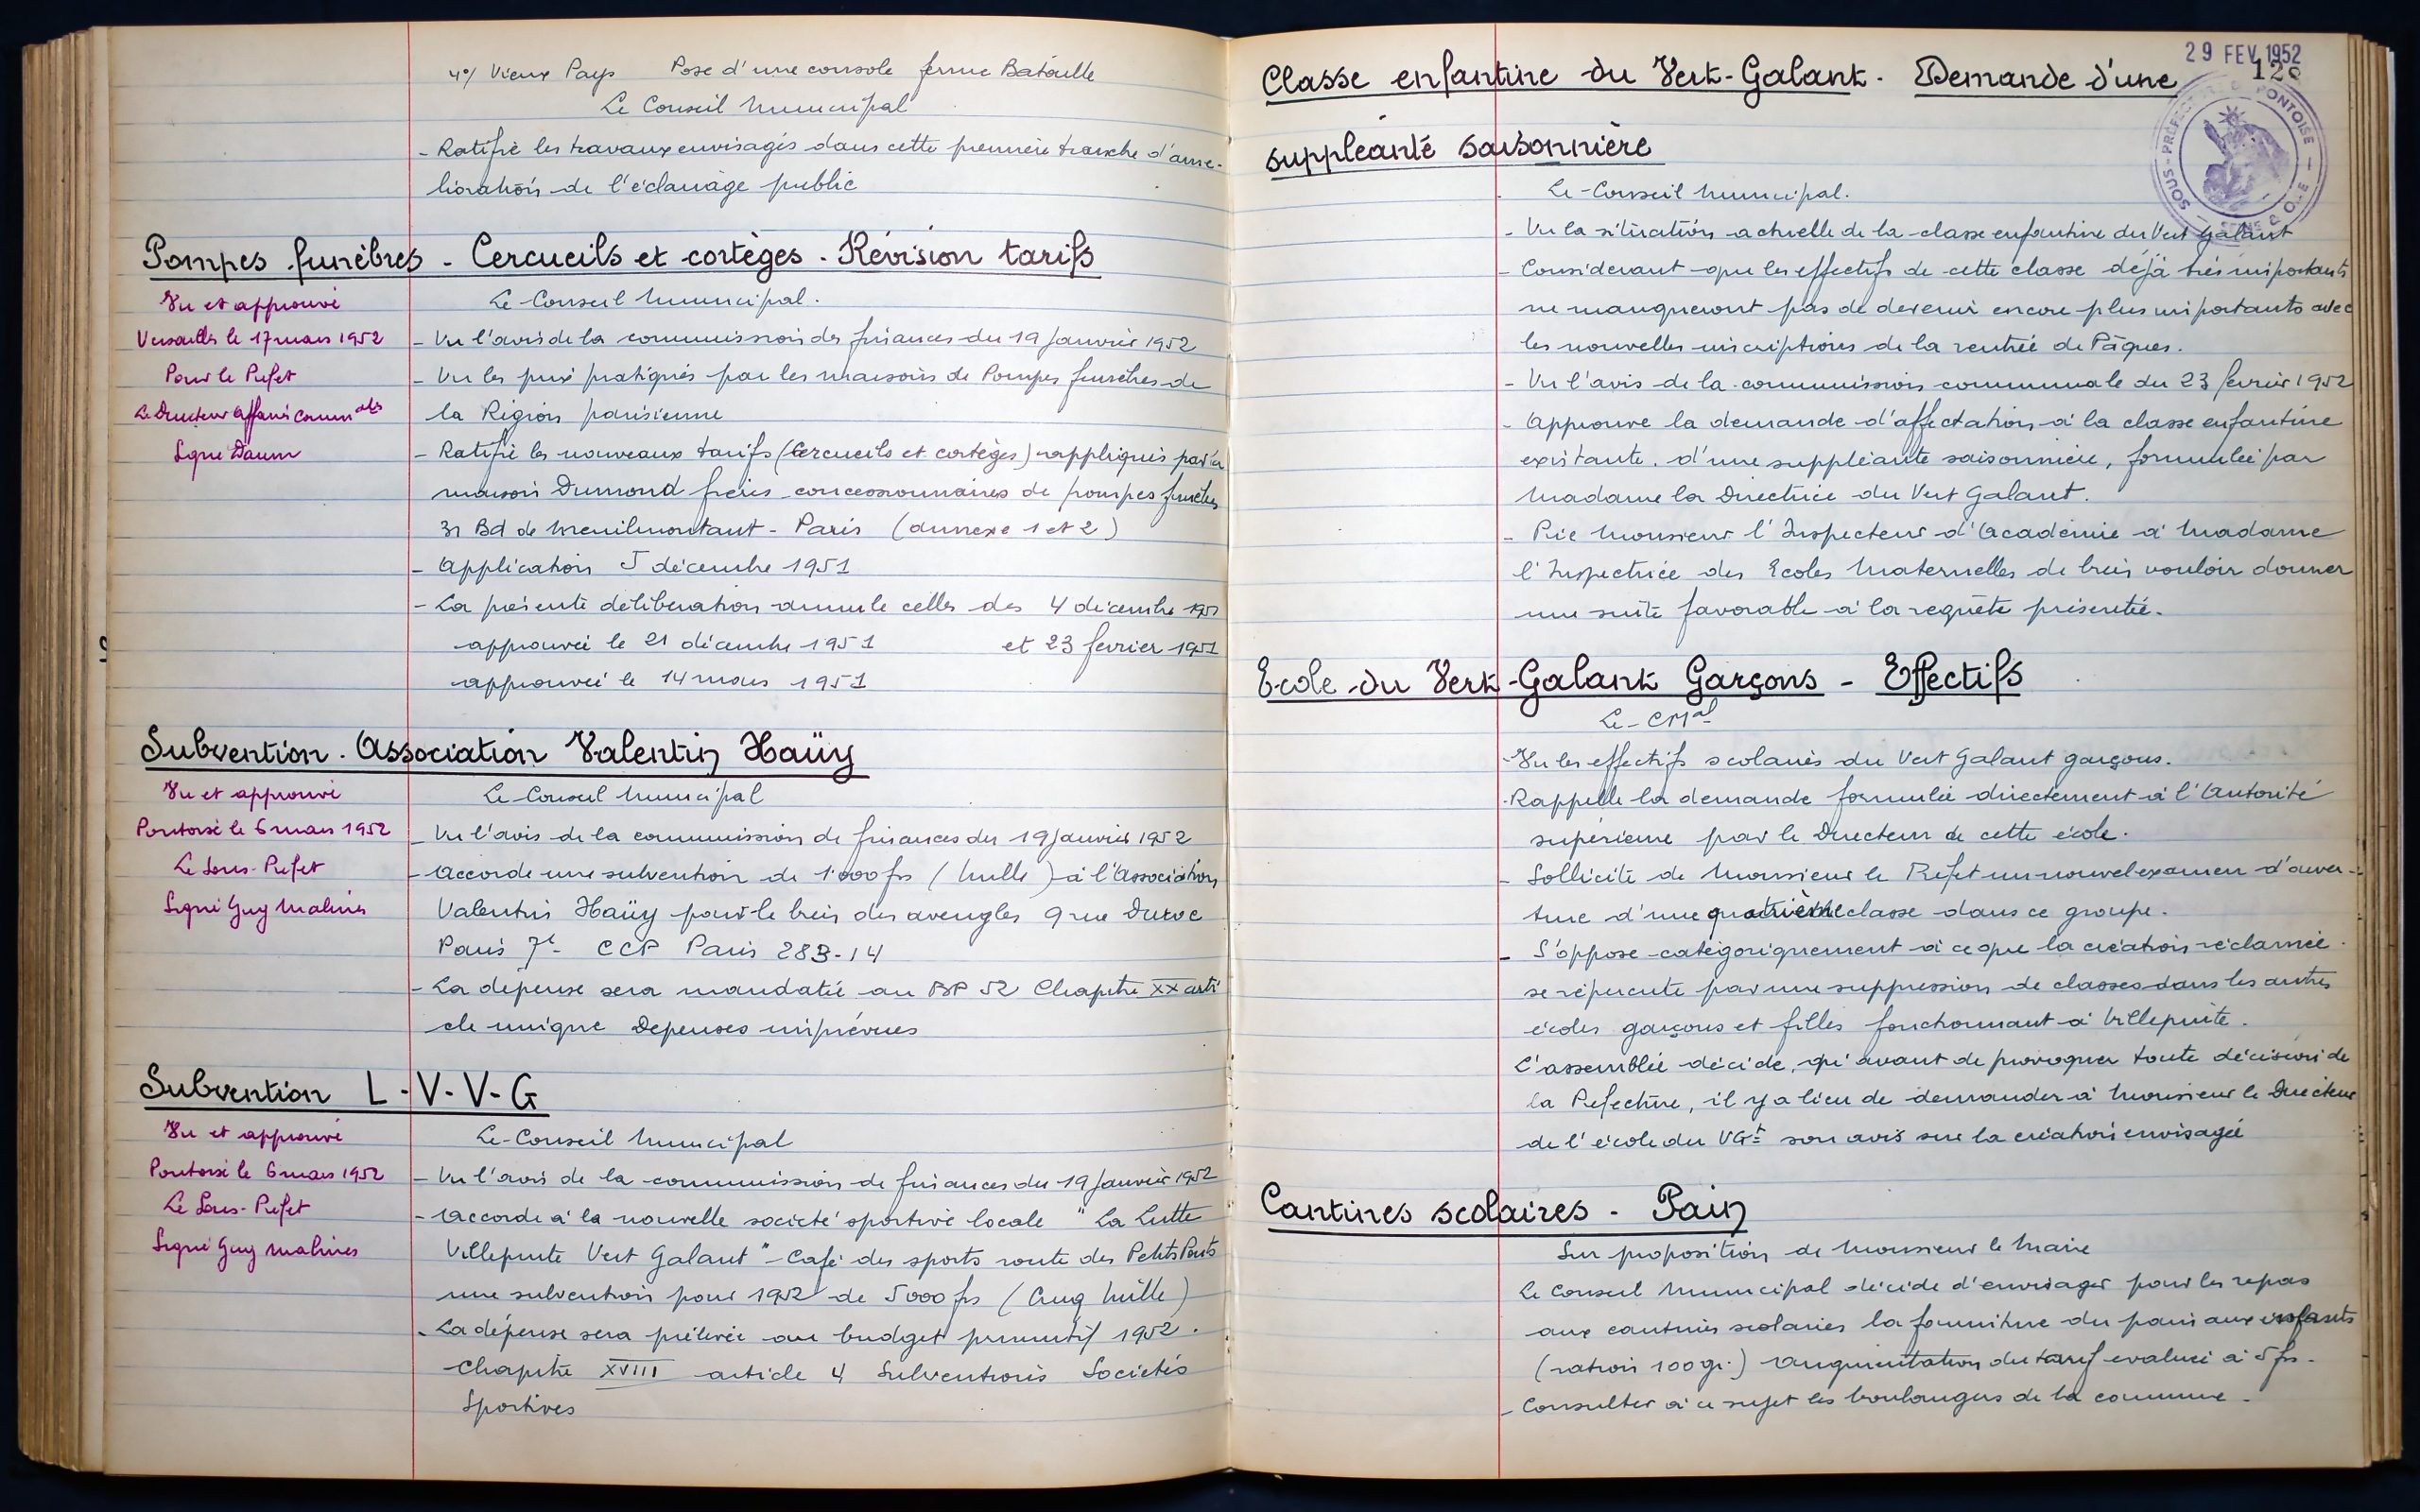 4°/ Vieux Pays Pose d'une console ferme Bataille
Le Conseil Municipal
- Ratifie les travaux envisagés dans cette première tranche d'amé-
lioration de l'éclairage public
Pompes funèbres - Cercueils et cortèges - Révision tarifs
Vu et approuvé
Versailles le 17 mars 1952
Pour le Préfet
Le Directeur Affaires Commales
Signé Daum
Le Conseil Municipal.
- Vu l'avis de la commission des finances du 19 Janvier 1952
- Vu les prix pratiqués par les maisons de Pompes funèbres de
la Région parisienne
- Ratifie les nouveaux tarifs (Cercueils et cortèges) appliqués par la
maison Dumond frères concessionnaires de pompes funèbres
31 Bd de Menilmontant - Paris (annexe 1 et 2)
- Application 5 décembre 1951
- La présente délibération annule celles des 4 décembre 1951
approuvée le 21 décembre 1951 et 23 février 1951
approuvée le 14 mars 1951
Subvention. Association Valentin Haüy
Vu et approuvé
Pontoise le 6 mars 1952
Le Sous-Préfet
Signé Guy Malines
Le Conseil Municipal
- Vu l'avis de la commission de finances du 19 Janvier 1952
- Accorde une subvention de 1.000 frs (Mille) à l'Association
Valentin Haüy pour le bien des aveugles 9 rue Duroc
Paris 7e - CCP Paris 283-14
- La dépense sera mandatée au BP 52 Chapitre XX arti
cle unique Dépenses imprévues
Subvention L-V-V-G
Vu et approuvé
Pontoise le 6 mars 1952
Le Sous-Préfet
Signé Guy Malines
Le Conseil Municipal
- Vu l'avis de la commission de finances du 19 Janvier 1952
- Accorde à la nouvelle société sportive locale "La Lutte
Villepinte Vert Galant" - Café des sports route des Petits Ponts
une subvention pour 1952 de 5000 frs (Cinq Mille)
- La dépense sera prélevée au budget primitif 1952.
Chapitre XVIII article 4 Subventions Sociétés
Sportives
29 FEV 1952
SOUS-PRÉFECTURE DE PONTOISE
SEINE & OISE
Classe enfantine du Vert-Galant. Demande d'une
suppléante saisonnière
Le Conseil Municipal.
- Vu la situation actuelle de la classe enfantine du Vert Galant
- Considérant que les effectifs de cette classe déjà très importants
ne manqueront pas de devenir encore plus importants avec
les nouvelles inscriptions de la rentrée de Pâques.
- Vu l'avis de la commission communale du 23 février 1952
- Approuve la demande d'affectation à la classe enfantine
existante, d'une suppléante saisonnière, formulée par
Madame la Directrice du Vert Galant.
- Prie Monsieur l'Inspecteur d'Académie à Madame
l'Inspectrice des Ecoles Maternelles de bien vouloir donner
une suite favorable à la requête présentée.
Ecole du Vert-Galant Garçons - Effectifs
Le CMal
- Vu les effectifs scolaires du Vert Galant garçons.
- Rappelle la demande formulée directement à l'Autorité
supérieure par le Directeur de cette école.
- Sollicite de Monsieur le Préfet un nouvel examen d'ouver-
ture d'une quatrième classe dans ce groupe.
- S'oppose catégoriquement à ce que la création réclamée
se répercute par une suppression de classes dans les autres
écoles garçons et filles fonctionnant à Villepinte.
L'assemblée décide, qu'avant de provoquer toute décision de
la Préfecture, il y a lieu de demander à Monsieur le Directeur
de l'école du VGt son avis sur la création envisagée
Cantines scolaires - Pain
Sur proposition de Monsieur le Maire
Le Conseil Municipal décide d'envisager pour les repas
aux cantines scolaires la fourniture du pain aux enfants
(ration 100 gr.) augmentation du tarif évaluée à 5 frs.
- Consulter à ce sujet les boulangers de la commune.